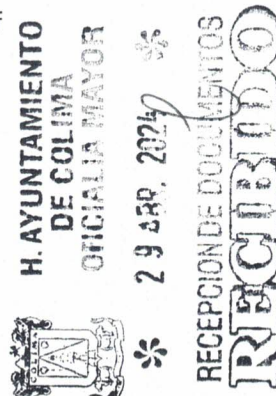 H. AYUNTAMIENTO
DE COLIMA
OFICIALIA MAYOR
29 ABR. 2024
RECEPCION DE DOCUMENTOS
RECIBIDO
COLIMA